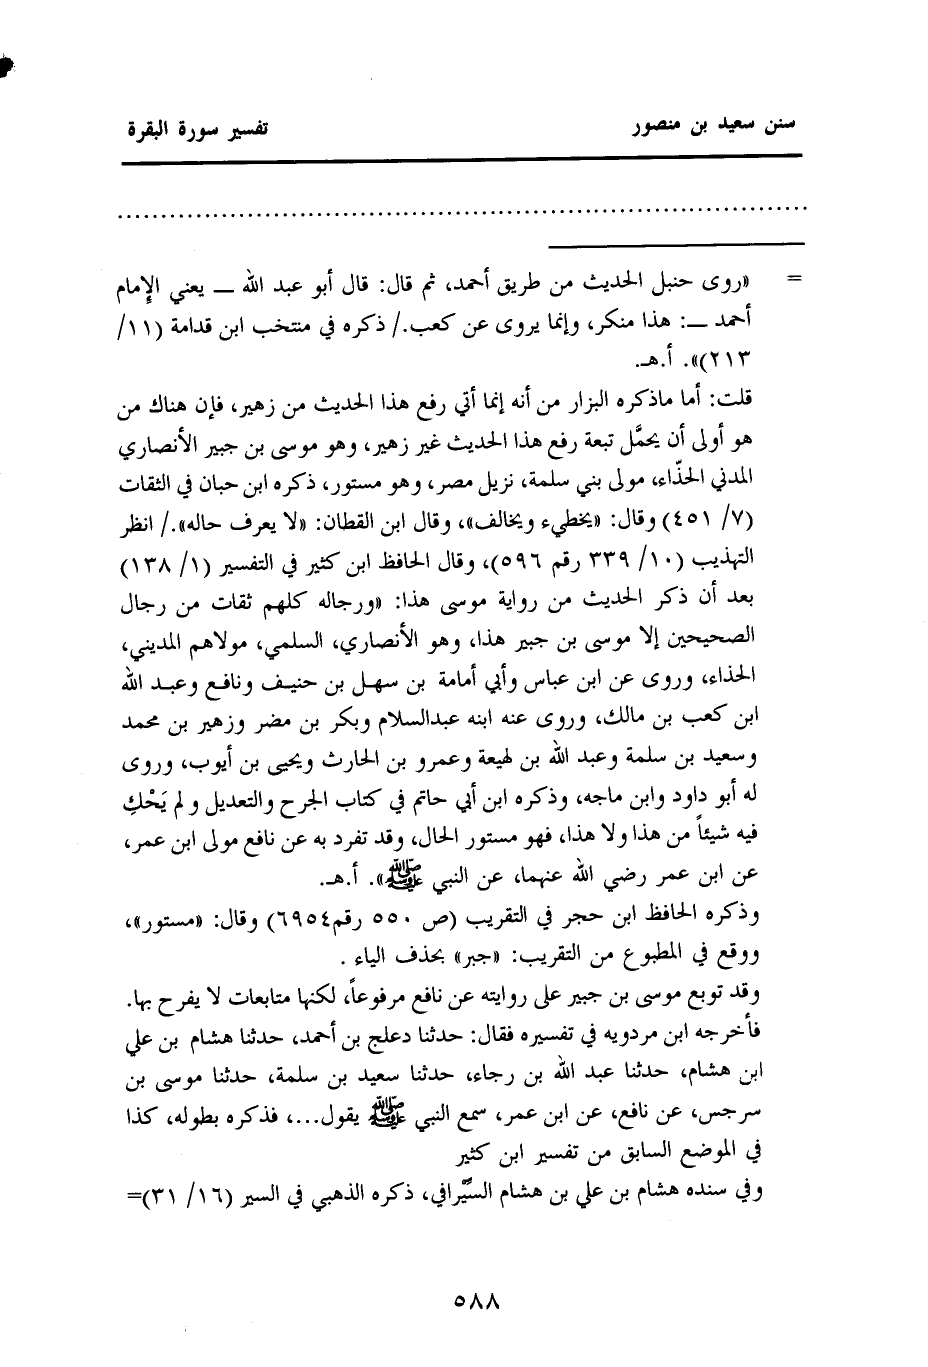 سنن سعيد بن منصور تفسير سورة البقرة
................................................................................
= «روى حنبل الحديث من طريق أحمد، ثم قال: قال أبو عبد الله ــ يعني الإمام
أحمد ــ: هذا منكر، وإنما يروى عن كعب./ ذكره في منتخب ابن قدامة (١١/
٢١٣)». أ.هـ.
قلت: أما ماذكره البزار من أنه إنما أتي رفع هذا الحديث من زهير، فإن هناك من
هو أولى أن يحمَّل تبعة رفع هذا الحديث غير زهير، وهو موسى بن جبير الأنصاري
المدني الحذّاء، مولى بني سلمة، نزيل مصر، وهو مستور، ذكره ابن حبان في الثقات
(٧/ ٤٥١) وقال: «يخطيء ويخالف»، وقال ابن القطان: «لا يعرف حاله»./ انظر
التهذيب (١٠/ ٣٣٩ رقم ٥٩٦)، وقال الحافظ ابن كثير في التفسير (١/ ١٣٨)
بعد أن ذكر الحديث من رواية موسى هذا: «ورجاله كلهم ثقات من رجال
الصحيحين إلا موسى بن جبير هذا، وهو الأنصاري، السلمي، مولاهم المديني،
الحذاء، وروى عن ابن عباس وأبي أمامة بن سهل بن حنيف ونافع وعبد الله
ابن كعب بن مالك، وروى عنه ابنه عبدالسلام وبكر بن مضر وزهير بن محمد
وسعيد بن سلمة وعبد الله بن لهيعة وعمرو بن الحارث ويحيى بن أيوب، وروى
له أبو داود وابن ماجه، وذكره ابن أبي حاتم في كتاب الجرح والتعديل ولم يَحْكِ
فيه شيئاً من هذا ولا هذا، فهو مستور الحال، وقد تفرد به عن نافع مولى ابن عمر،
عن ابن عمر رضي الله عنهما، عن النبي ﷺ». أ.هـ.
وذكره الحافظ ابن حجر في التقريب (ص ٥٥٠ رقم٦٩٥٤) وقال: «مستور»،
ووقع في المطبوع من التقريب: «جبر» بحذف الياء .
وقد توبع موسى بن جبير على روايته عن نافع مرفوعاً، لكنها متابعات لا يفرح بها.
فأخرجه ابن مردويه في تفسيره فقال: حدثنا دعلج بن أحمد، حدثنا هشام بن علي
ابن هشام، حدثنا عبد الله بن رجاء، حدثنا سعيد بن سلمة، حدثنا موسى بن
سرجس، عن نافع، عن ابن عمر، سمع النبي ﷺ يقول...، فذكره بطوله، كذا
في الموضع السابق من تفسير ابن كثير
وفي سنده هشام بن علي بن هشام السِّيرافي، ذكره الذهبي في السير (١٦/ ٣١)=
٥٨٨